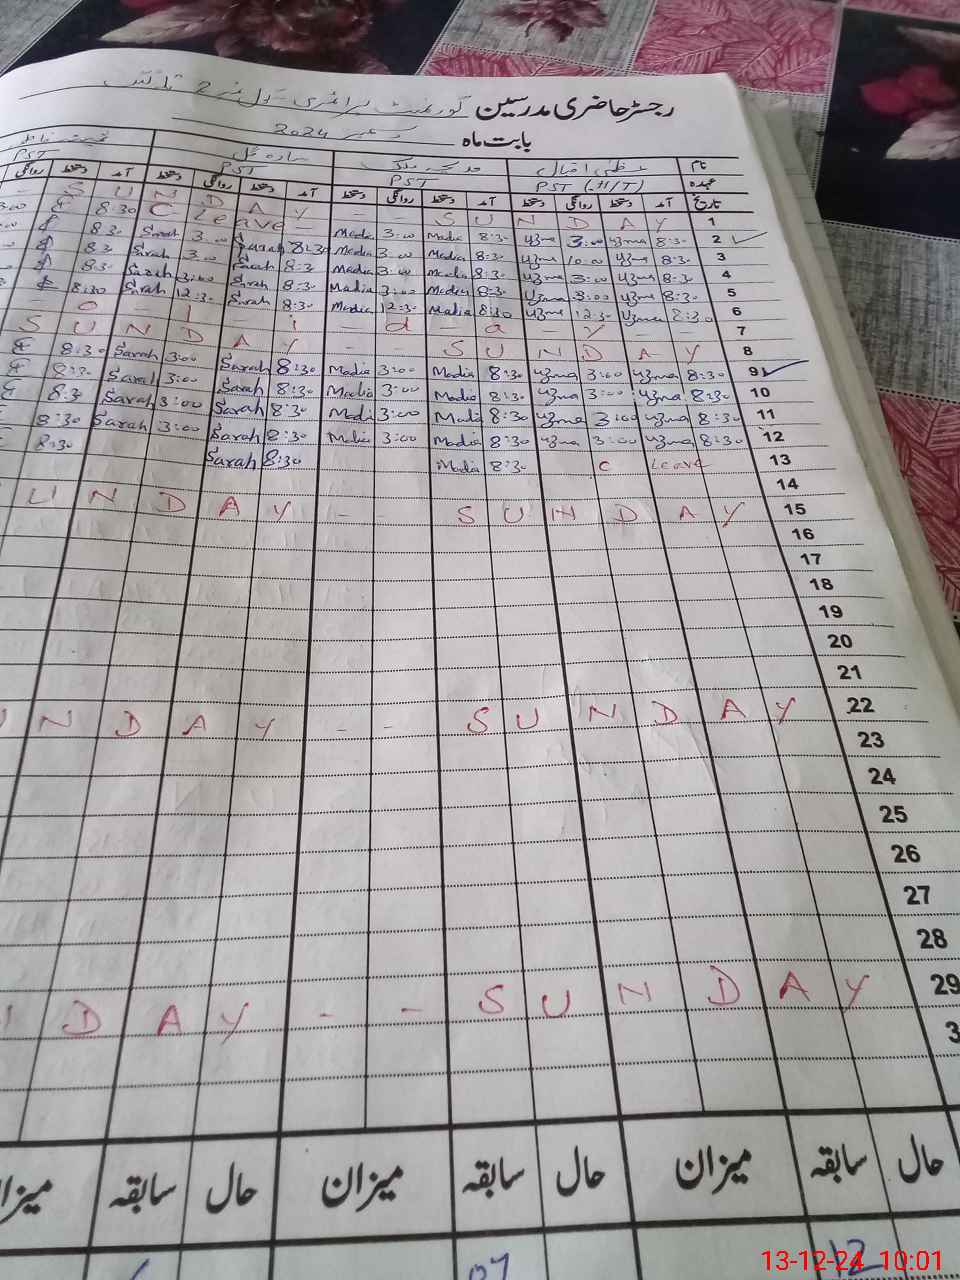 رجسٹر حاضری مدرسین گورنمنٹ پرائمری سکول نمبر 2
بابت ماہ دسمبر 2024
نام عظمیٰ اقبال سارہ گل
عہدہ PST (H/T) PST PST PST
تاریخ آمد دستخط روانگی دستخط آمد دستخط روانگی دستخط آمد دستخط روانگی دستخط آمد دستخط روانگی
1 S U N D A Y - - S U N D A Y
2 8:30 Uzma 3:00 Uzma 8:30 Madia 3:00 Madia C Leave 8:30
3 8:30 Uzma 10:00 Uzma 8:30 Madia 3:00 Madia 8:30 Sarah 3:00 Sarah 8:30
4 8:30 Uzma 3:00 Uzma 8:30 Madia 3:00 Madia 8:30 Sarah 3:00 Sarah 8:30
5 8:30 Uzma 3:00 Uzma 8:30 Madia 3:00 Madia 8:30 Sarah 3:00 Sarah 8:30
6 8:30 Uzma 12:30 Uzma 8:30 Madia 12:30 Madia 8:30 Sarah 12:30 Sarah 8:30
7 o - l - i - d - a - y
8 S U N D A Y - - S U N D A Y
9 8:30 Uzma 3:00 Uzma 8:30 Madia 3:00 Madia 8:30 Sarah 3:00 Sarah 8:30
10 8:30 Uzma 3:00 Uzma 8:30 Madia 3:00 Madia 8:30 Sarah 3:00 Sarah 8:30
11 8:30 Uzma 3:00 Uzma 8:30 Madia 3:00 Madia 8:30 Sarah 3:00 Sarah 8:30
12 8:30 Uzma 3:00 Uzma 8:30 Madia 3:00 Madia 8:30 Sarah 3:00 Sarah 8:30
13 C Leave 8:30 Madia 8:30 Sarah 8:30
14
15 S U N D A Y - - U N D A Y
16
17
18
19
20
21
22 S U N D A Y - - U N D A Y
23
24
25
26
27
28
29 S U N D A Y - - D A Y
3
حال سابقہ میزان حال سابقہ میزان حال سابقہ میزان
12 07
13-12-24 10:01